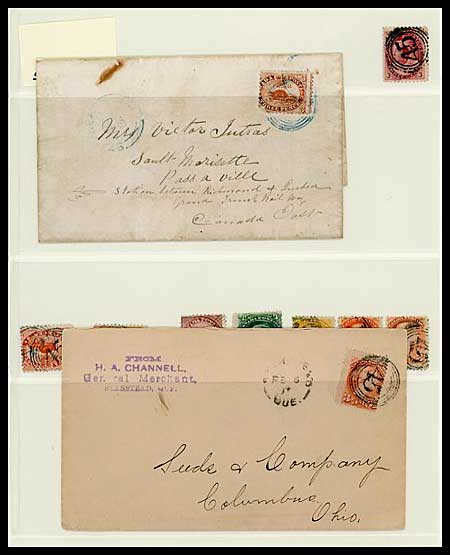 45
THREE PENCE
Mrs Victor Jutras
Sault Morisette
Pass a Ville
Station between Richmond & Quebec
Grand Trunk Rail Way
Canada East
FROM
H. A. CHANNELL,
General Merchant,
STANSTEAD, QUE.
QUE.
Suds & Company
Columbus.
Ohio.